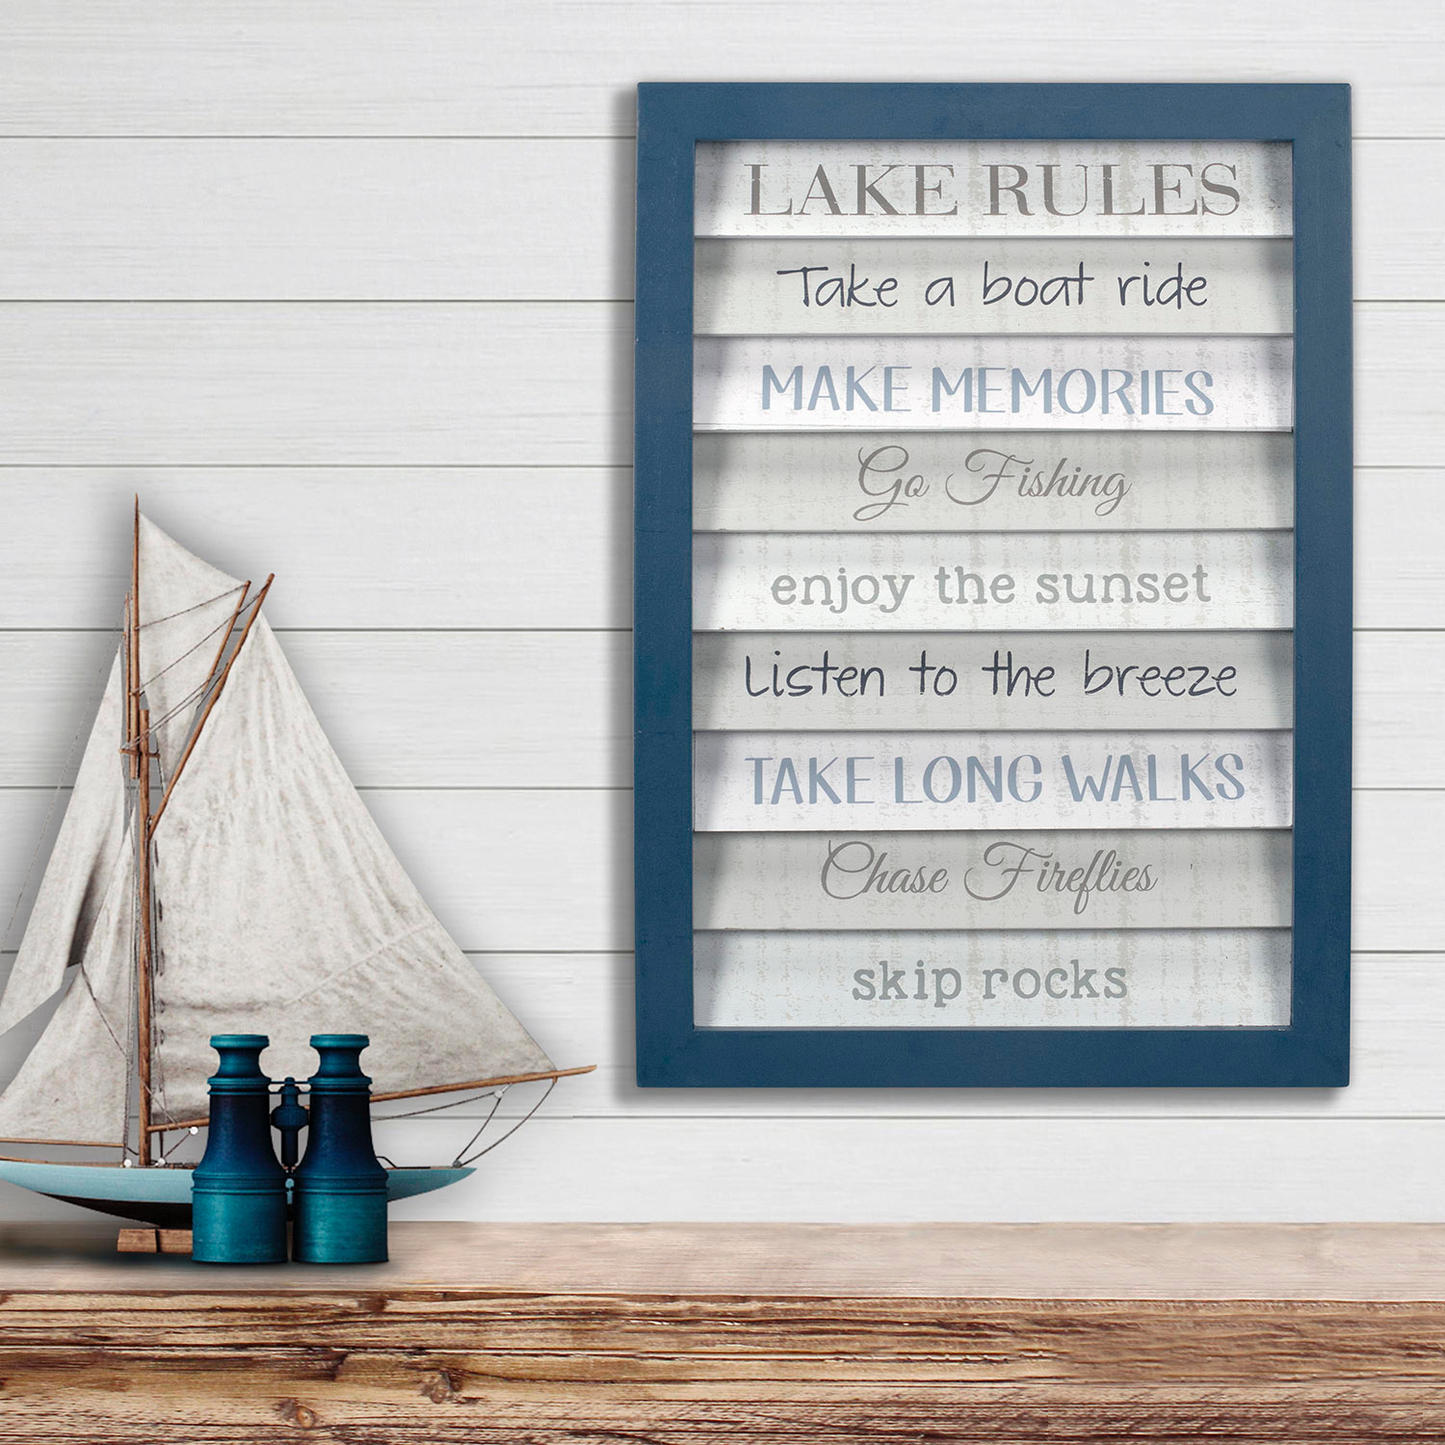 LAKE RULES
Take a boat ride
MAKE MEMORIES
Go Fishing
enjoy the sunset
Listen to the breeze
TAKE LONG WALKS
Chase Fireflies
skip rocks